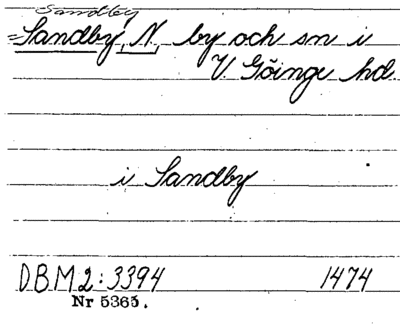 Sandby
=Sandby, N. by och sn i
V. Göinge hd.
i Sandby
D.B.M 2:3394 1474
Nr 5365.